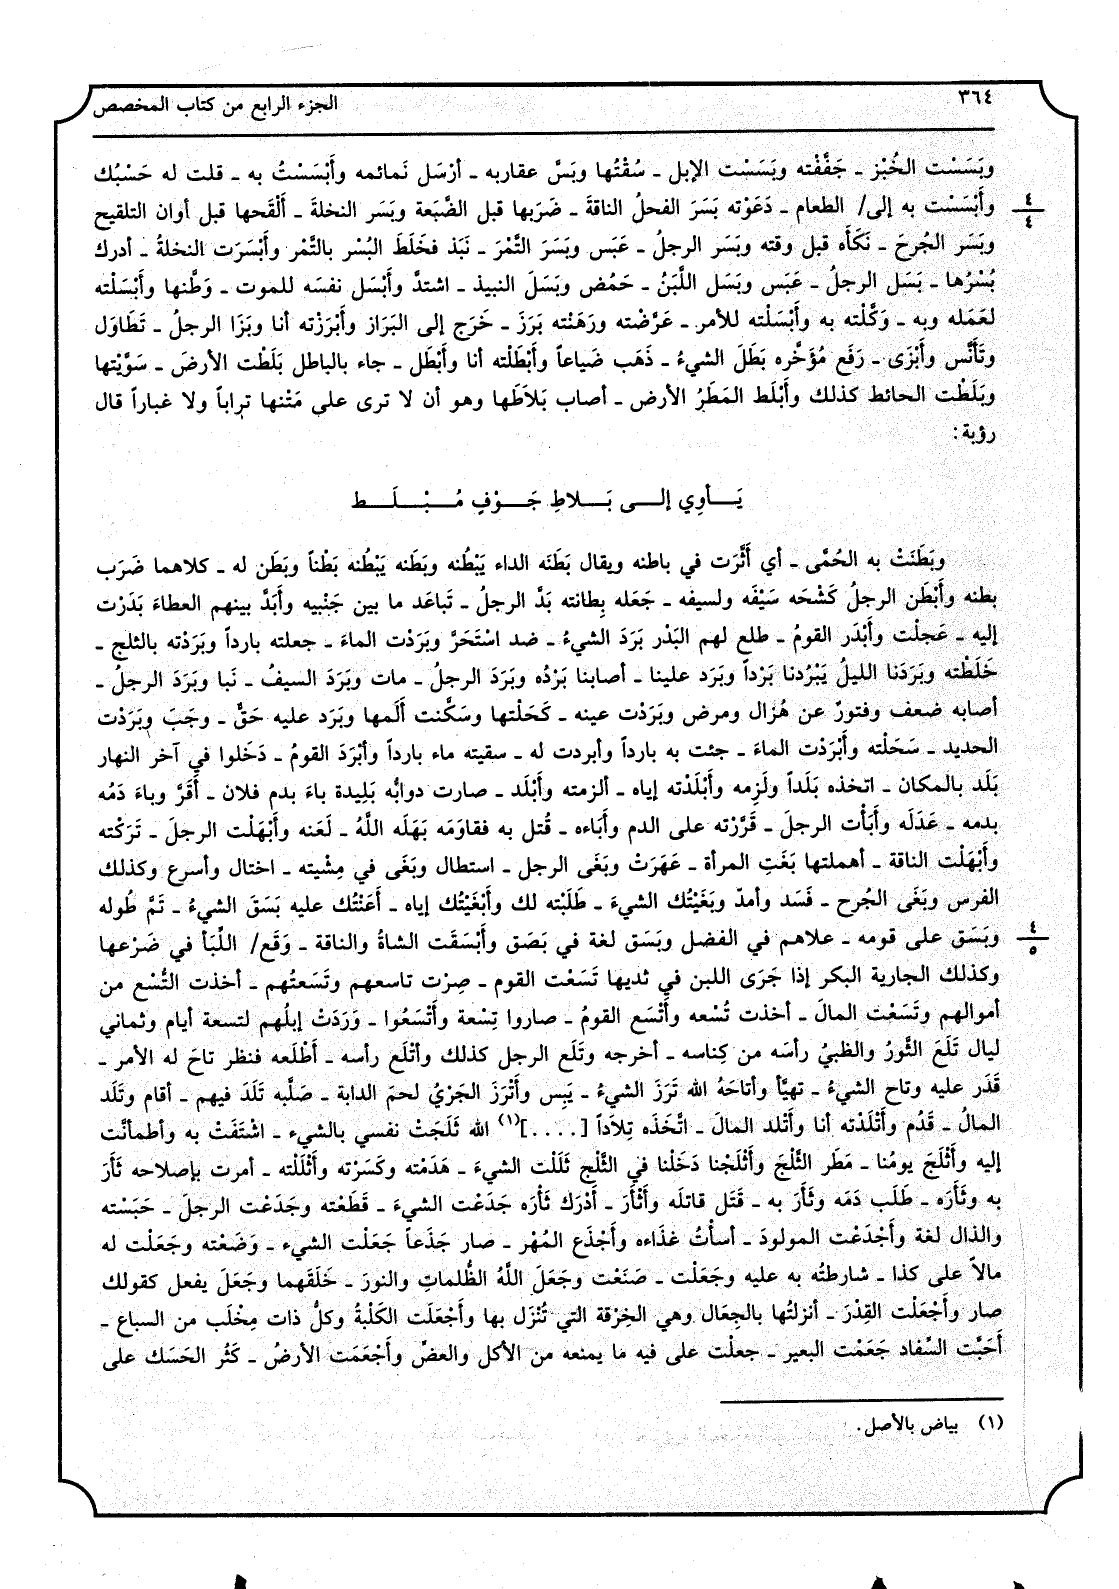 ٣٦٤
الجزء الرابع من كتاب المخصص
وبَسَسْت الخُبْز ـ جَفَّفْته وبَسَسْت الإبل ـ سُقْتُها وبَسَّ عقاربه ـ أرْسَل نَمائمه وأَبْسَسْتُ به ـ قلت له حَسْبُك
وأَبْسَسْت به إلى/ الطعام ـ دَعَوْته بَسَرَ الفحلُ الناقةَ ـ ضَرَبها قبل الضَّبَعة وبَسَر النخلةَ ـ أَلْقَحها قبل أوان التلقيح
٤
٤
وبَسَر الجُرحَ ـ نَكَأَه قبل وقته وبَسَر الرجلُ ـ عَبَس وبَسَرَ التَّمْرَ ـ نَبَذ فخَلَطَ البُسْر بالتَّمْر وأَبْسَرَت النخلةُ ـ أدرك
بُسْرُها ـ بَسَل الرجلُ ـ عَبَس وبَسَل اللَّبَنُ ـ حَمُض وبَسَلَ النبيذ ـ اشتدَّ وأَبْسَل نفسَه للموت ـ وَطَّنها وأَبْسَلْته
لعَمَله وبه ـ وَكَّلْته به وأَبْسَلْته للأمر ـ عَرَّضْته ورَهَنْته بَرَزَ ـ خَرَج إلى البَرَاز وأَبْرَزْته أنا وبَزَا الرجلُ ـ تَطَاوَل
وتَأَنَّس وأَبْزَى ـ رَفَع مُؤَخَّره بَطَلَ الشيءُ ـ ذَهَب ضَياعاً وأَبْطَلْته أنا وأَبْطَل ـ جاء بالباطل بَلَطْت الأرضَ ـ سَوَّيْتها
وبَلَطْت الحائط كذلك وأَبْلَط المَطَرُ الأرض ـ أصاب بَلاَطَها وهو أن لا ترى على مَتْنها تراباً ولا غباراً قال
رؤبة:
يَــأوِي إلــى بَــلاطِ جَــوْفٍ مُــبْــلَــط
وبَطَنَتْ به الحُمَّى ـ أي أَثَّرَت في باطنه ويقال بَطَنَه الداء يَبْطُنه وبَطَنه يَبْطُنه بَطْناً وبَطَن له ـ كلاهما ضَرَب
بطنه وأَبْطَن الرجلُ كَشْحَه سَيْفَه ولسيفه ـ جَعَله بِطانته بَدَّ الرجلُ ـ تَباعَد ما بين جَنْبيه وأَبَدَّ بينهم العطاءَ بَدَرْت
إليه ـ عَجِلْت وأَبْدَر القومُ ـ طلع لهم البَدْر بَرَدَ الشيءُ ـ ضد اسْتَحَرَّ وبَرَدْت الماءَ ـ جعلته بارداً وبَرَدْته بالثلج ـ
خَلَطْته وبَرَدَنا الليلُ يَبْرُدنا بَرْداً وبَرَد علينا ـ أصابنا بَرْدُه وبَرَدَ الرجلُ ـ مات وبَرَدَ السيفُ ـ نَبا وبَرَدَ الرجلُ ـ
أصابه ضعف وفتورٌ عن هُزال ومرض وبَرَدْت عينه ـ كَحَلْتها وسَكَّنت أَلَمها وبَرَد عليه حَقٌّ ـ وجَبَ وبَرَدْت
الحديد ـ سَحَلْته وأَبْرَدْت الماءَ ـ جئت به بارداً وأبردت له ـ سقيته ماء بارداً وأَبْرَدَ القومُ ـ دَخَلوا في آخر النهار
بَلَد بالمكان ـ اتخذه بَلَداً ولَزِمه وأَبْلَدْته إياه ـ ألزمته وأَبْلَد ـ صارت دوابُّه بَلِيدة باءَ بدم فلان ـ أَقَرَّ وباءَ دَمُه
بدمه ـ عَدَلَه وأَبَأْت الرجلَ ـ قَرَّرْته على الدم وأَبَاءه ـ قُتل به فقاوَمَه بَهَلَه اللَّهُ ـ لَعَنه وأَبْهَلْت الرجلَ ـ تَرَكْته
وأَبْهَلْت الناقة ـ أهملتها بَغَتِ المرأة ـ عَهَرَتْ وبَغَى الرجل ـ استطال وبَغَى في مِشْيته ـ اختال وأسرع وكذلك
الفرس وبَغَى الجُرح ـ فَسَد وأمدّ وبَغَيْتُك الشيءَ ـ طَلَبْته لك وأَبْغَيْتُك إياه ـ أَعَنْتُك عليه بَسَقَ الشيءُ ـ تَمَّ طُوله
وبَسَق على قومه ـ علاهم في الفضل وبَسَق لغة في بَصَق وأَبْسَقَت الشاةُ والناقة ـ وَقَع/ اللِّبَأ في ضَرْعها
٤
٥
وكذلك الجارية البكر إذا جَرَى اللبن في ثديها تَسَعْت القوم ـ صِرْت تاسعهم وتَسَعتُهم ـ أخذت التُّسْع من
أموالهم وتَسَعْت المالَ ـ أخذت تُسْعه وأَتْسَع القومُ ـ صاروا تِسْعة وأَتْسَعُوا ـ وَرَدَتْ إبلُهم لتسعة أيام وثماني
ليال تَلَعَ الثَّورُ والظبيُ رأسَه من كِناسه ـ أخرجه وتَلَع الرجل كذلك وأَتْلَع رأسه ـ أَطْلَعه فنظر تاحَ له الأمر ـ
قَدَر عليه وتاح الشيءُ ـ تهيَّأ وأتاحَهُ الله تَرَزَ الشيءُ ـ يَبِس وأَتْرَزَ الجَرْيُ لحمَ الدابة ـ صَلَّبه تَلَدَ فيهم ـ أقام وتَلَد
المالُ ـ قَدُم وأَتْلَدْته أنا وأَتْلد المالَ ـ اتَّخَذَه تِلاَداً [....](١) الله ثَلَجَتْ نفسي بالشيء ـ اشْتَفَتْ به وأطمأنَّت
إليه وأَثْلَجَ يومُنا ـ مَطَر الثَّلْجَ وأَثْلَجْنا دَخَلْنا في الثَّلْج ثَلَلْت الشيءَ ـ هَدَمْته وكَسَرْته وأَثْلَلْته ـ أمرت بإصلاحه ثَأَرَ
به وثَأَرَه ـ طَلَب دَمَه وثَأَرَ به ـ قَتَل قاتلَه وأَثْأَرَ ـ أَدْرَك ثَأْرَه جَدَعْت الشيءَ ـ قَطَعْته وجَدَعْت الرجلَ ـ حَبَسْته
والذال لغة وأَجْدَعْت المولودَ ـ أسأْتُ غذاءه وأَجْذَع المُهْر ـ صار جَذَعاً جَعَلْت الشيء ـ وَضَعْته وجَعَلْت له
مالاً على كذا ـ شارطتُه به عليه وجَعَلْت ـ صَنَعْت وجَعَلَ اللَّهُ الظُّلماتِ والنورَ ـ خَلَقَهما وجَعَلَ يفعل كقولك
صار وأَجْعَلْت القِدْرَ ـ أنزلتُها بالجِعَال وهي الخِرْقة التي تُنْزَل بها وأَجْعَلَت الكَلْبةُ وكلُّ ذات مِخْلَب من السباع ـ
أَحَبَّت السِّفاد جَعَمْت البعير ـ جعلْت على فيه ما يمنعه من الأكل والعضِّ وأَجْعَمَت الأرضُ ـ كَثُر الحَسَك على
(١) بياض بالأصل.